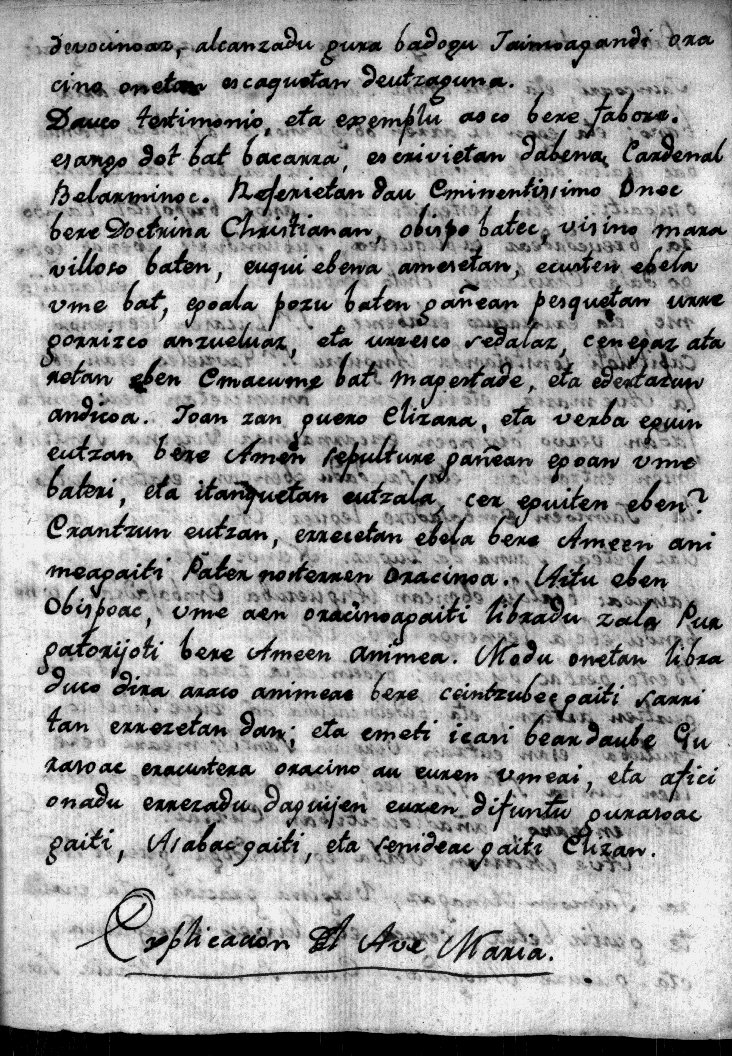 devocinoaz, alcanzadu gura badogu Jaincoagandi ora
cino onetan escaquetan deutzaguna.
Dauco testimonio, eta exemplu asco bere fabore.
esango dot bat bacarra, escrivietan dabena Cardenal
Belarminoc. Referietan dau Eminentissimo Onec
bere Doctrina Christianan, obispo batec, visino mara
villoso baten, euqui ebena ametsetan, ecusten ebela
vme bat, egoala pozu baten gañean pesquetan urre
gorrizco anzueluaz, eta urresco sedalaz, cenegaz ata
ratan eben Emacume bat magestade, eta edertazun
andicoa. Joan zan guero Elizara, eta verba eguin
eutzan bere Amen sepulture gañean egoan vme
bateri, eta itanquetan eutzala, cer eguiten eben?
Erantzun eutzan, errecetan ebela bere Ameen ani
meagaiti Pater nosterren oracinoa. Aitu eben
Obispoac, vme aen oracinoagaiti libradu zala Pur
gatorijoti bere Ameen animea. Modu onetan libra
duco dira araco animeac bere ceintzubec gaiti sarri
tan errezetan dan; eta emeti icasi bear daube Gu
rasoac eracustera oracino au euren vmeai, eta afici
onadu errezadu daguijen euren difuntu gurasoac
gaiti, Asabac gaiti, eta senideac gaiti Elizan.
Explicación Del Ave Maria.